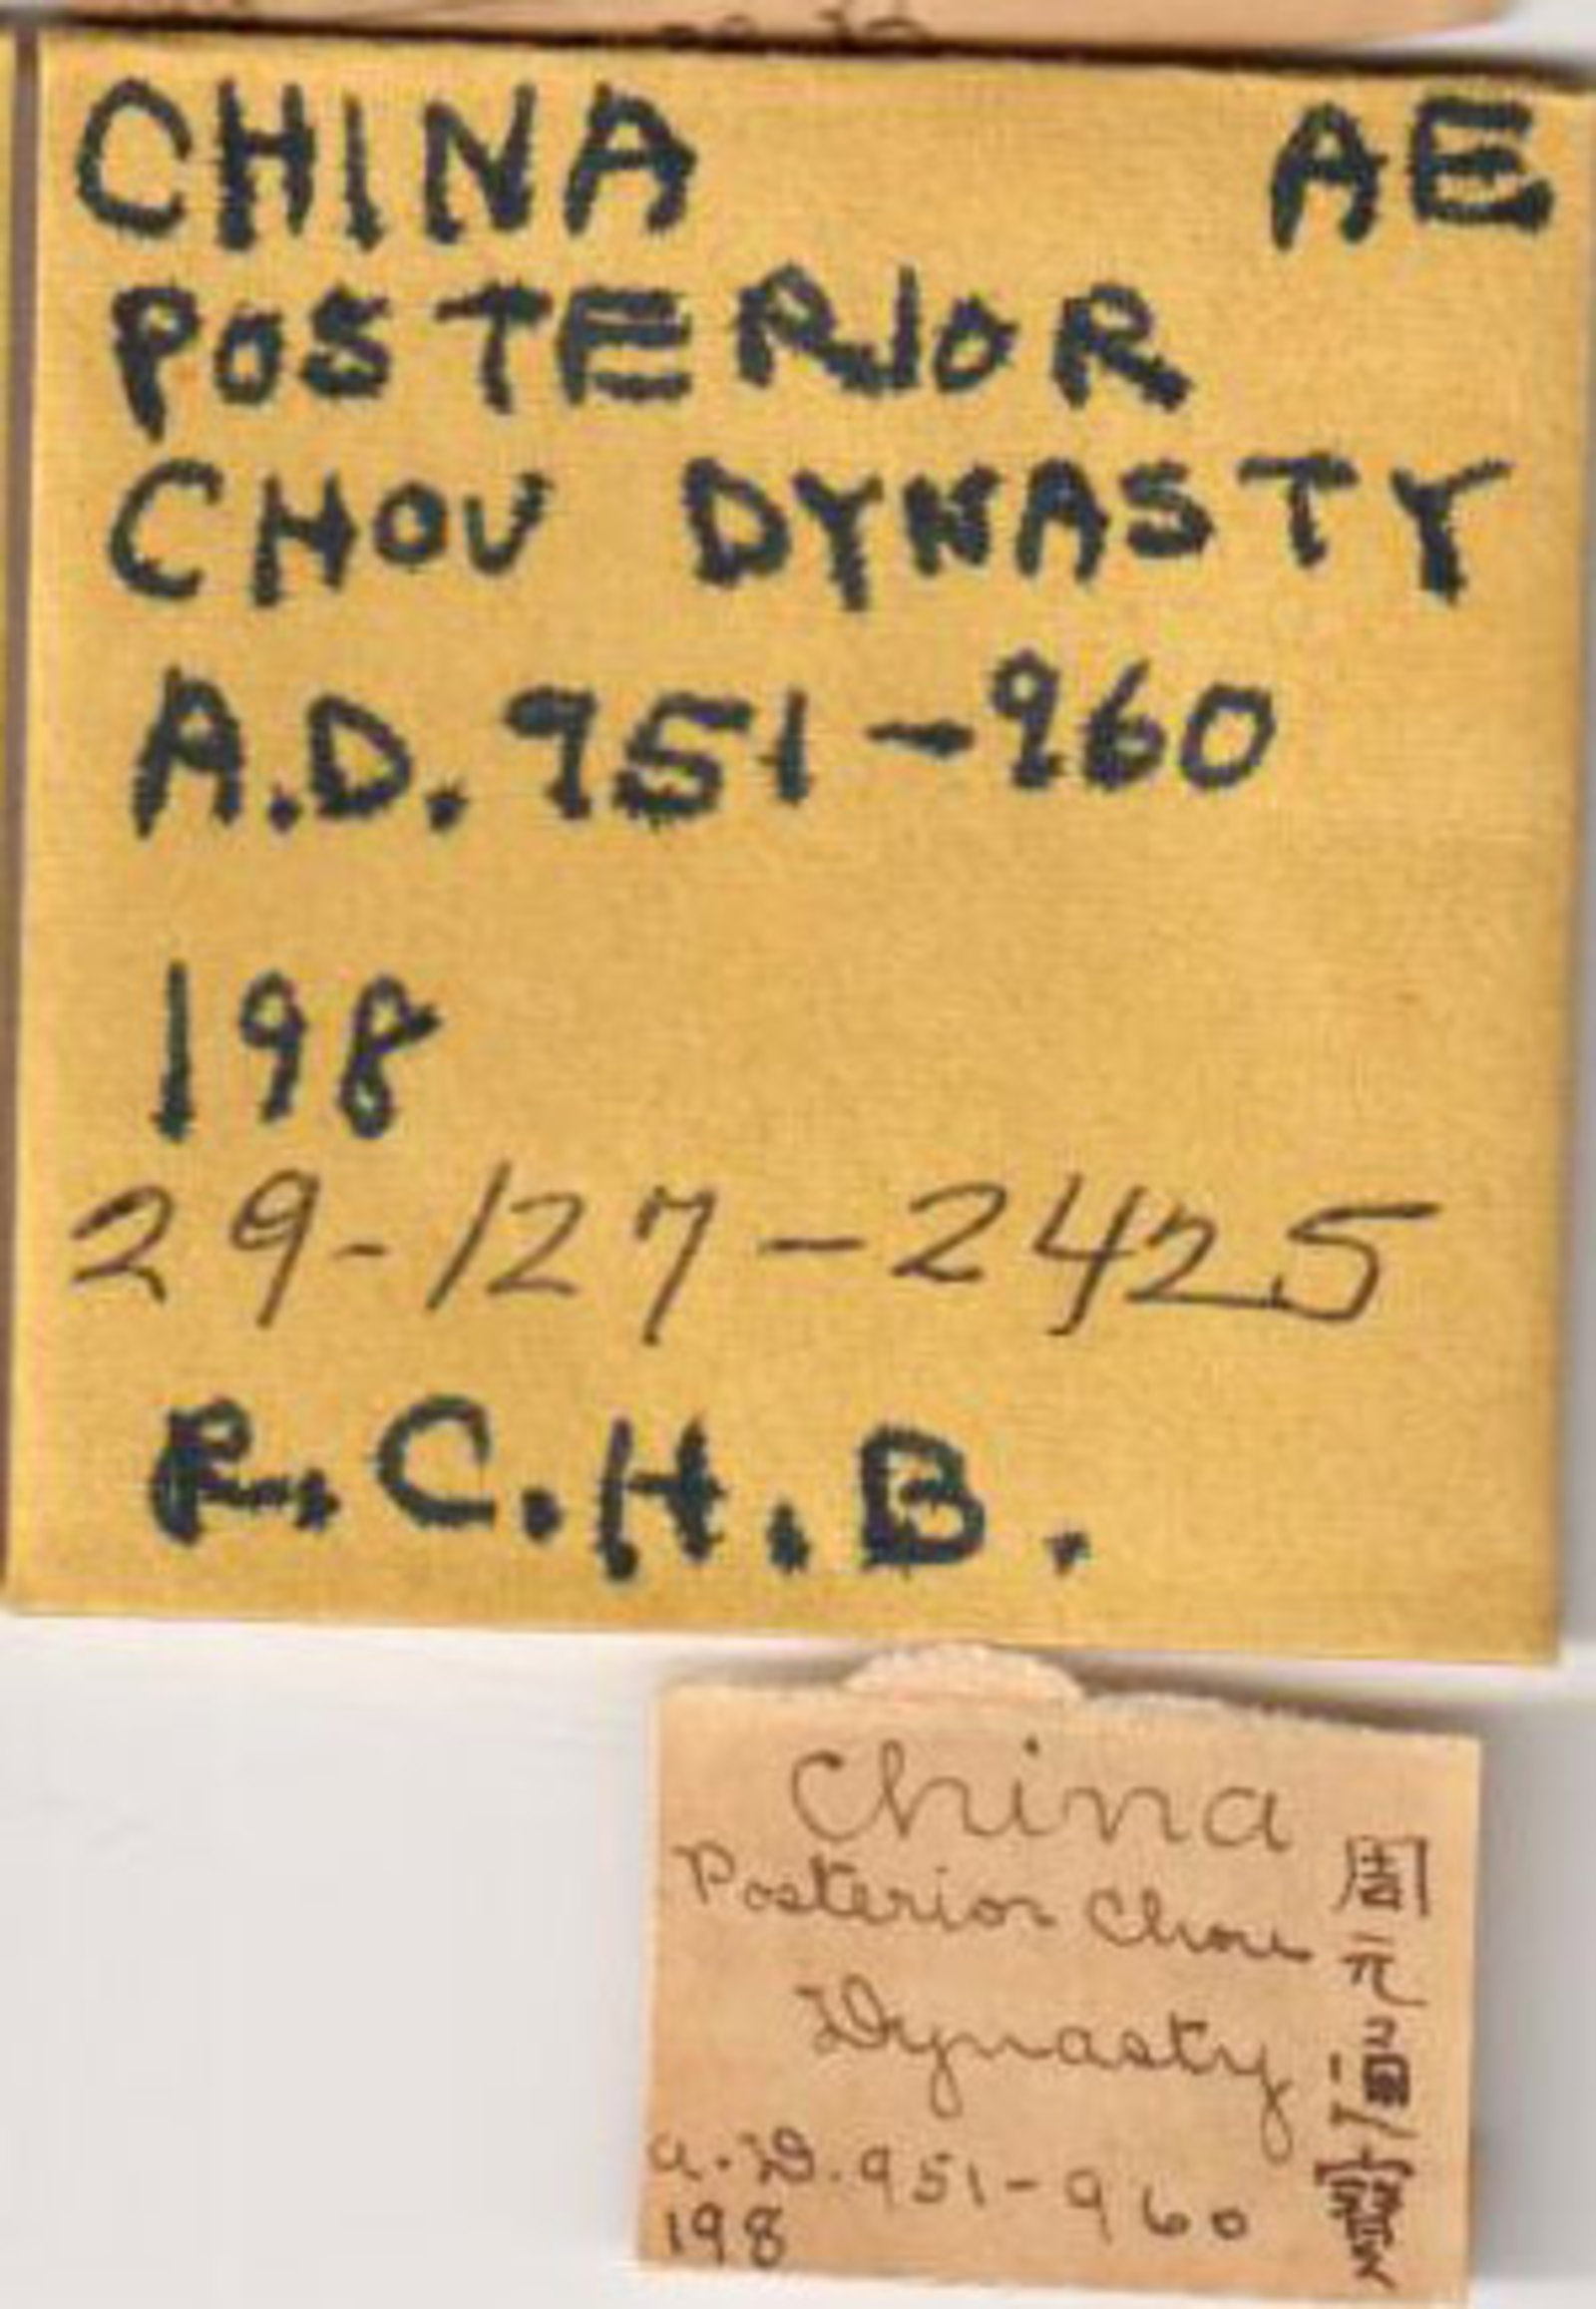 CHINA AE
POSTERIOR
CHOU DYNASTY
A.D. 951-960
198
29-127-2425
R.C.H.B.
China
Posterior Chou
Dynasty
A.D. 951-960
198
周元通寳